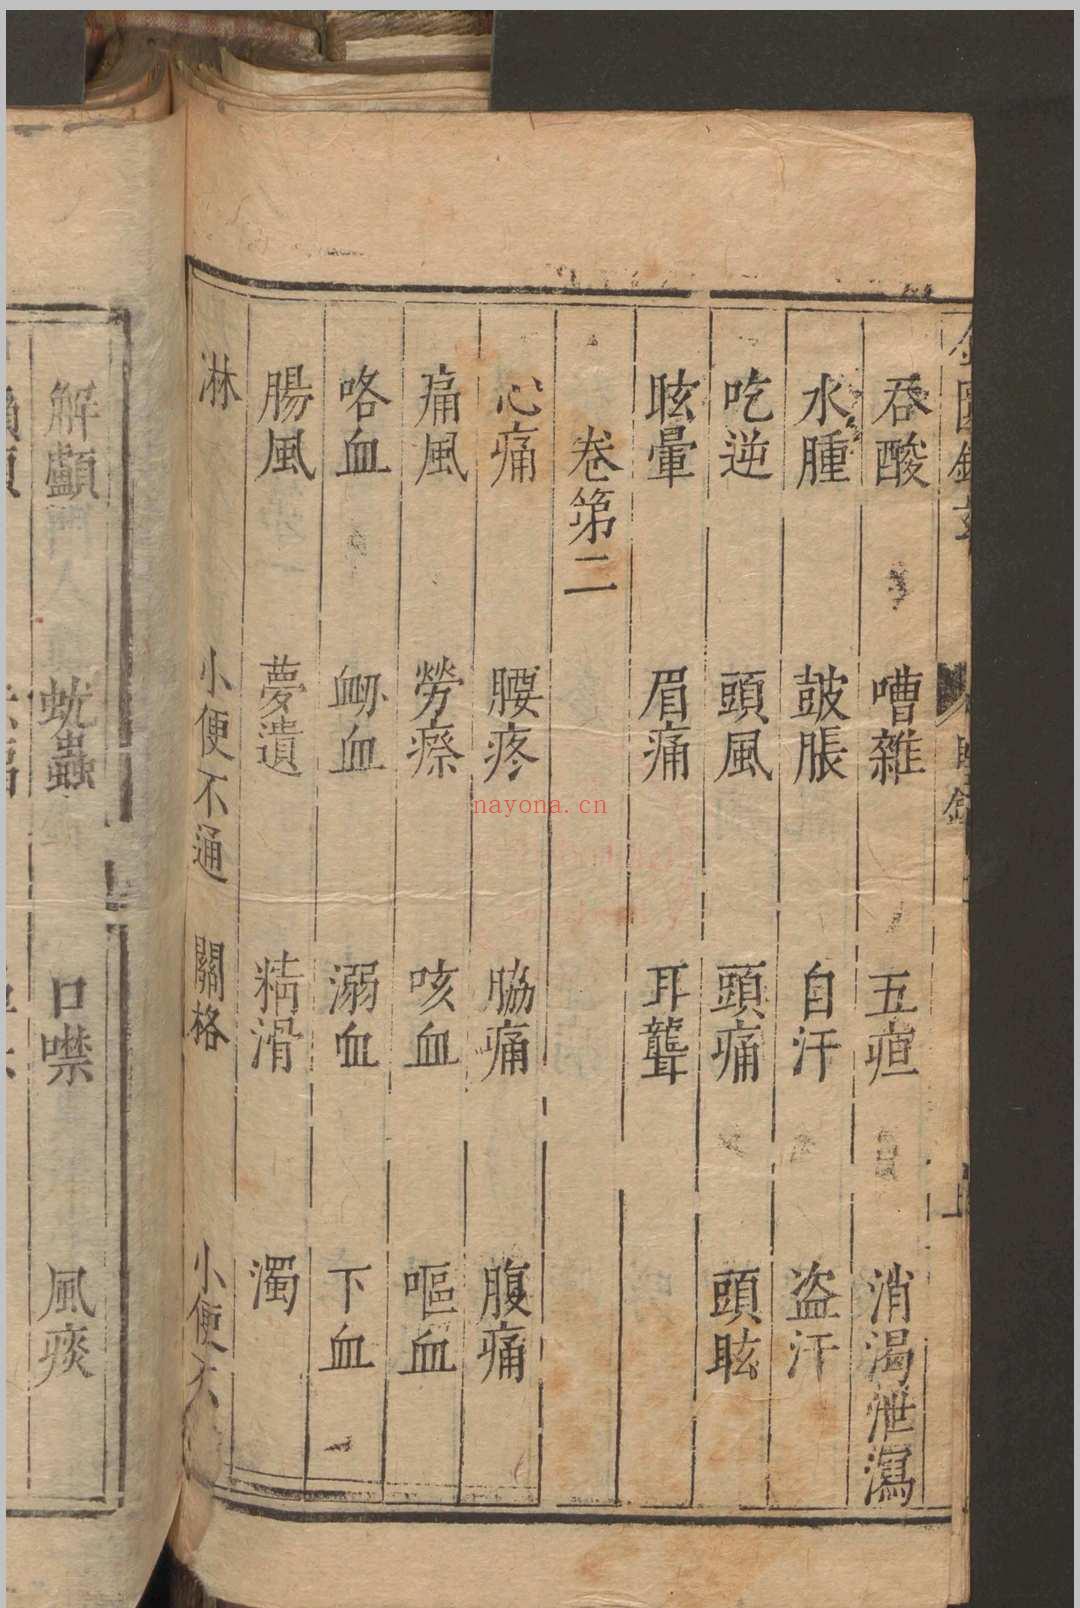 吞酸 嘈雜 五疸 消渴泄瀉
水腫 皷脹 自汗 盗汗
吃逆 頭風 頭痛 頭眩
眩暈 眉痛 耳聾
卷第二
心痛 腰疼 脇痛 腹痛
痛風 勞瘵 咳血 嘔血
咯血 衂血 溺血 下血
腸風 夢遺 精滑 濁
淋 小便不通 關格 小便不
解顱 蚘蟲 口噤 風痰
nayona.cn